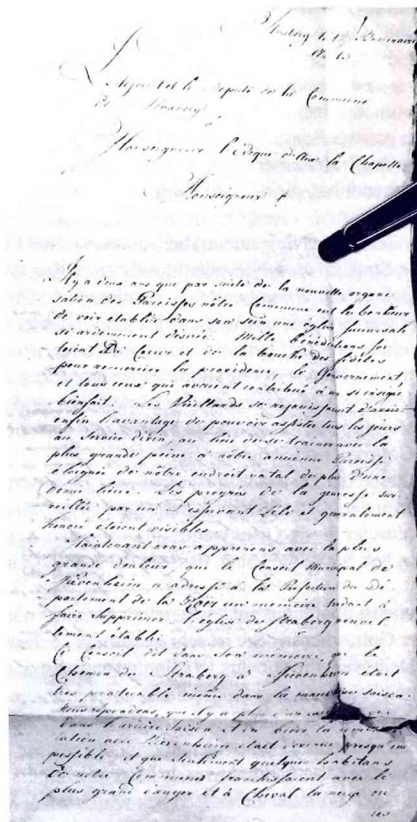 Straberg le 19 Brumaire
An 13
L'adjoint et le deputé de la Commune
de Straberg
a
Monseigneur l'évêque d'Aix la Chapelle
Monseigneur
Il y a deux ans que par suite de la nouvelle organi-
sation des Paroisses nôtre Commune eut le bonheur
de voir etablir dans son sein une eglise succursale
ardemment desirée. Mille bénédictions sor-
toient Du Coeur et de la bouche des fidèles
pour remercier la providence, le Gouvernement,
et tous ceux qui avaient contribué à un si insigne
bienfait. Les Vieillards se rejouissent d'avoir
enfin l'avantage de pouvoir assister tous les jours
au Service divin, au lieu de se trainer avec la
plus grande peine à nôtre ancienne Paroisse
éloignée de nôtre endroit natal de plus d'une
demie lieue. Les progrès de la jeunesse sur-
veillée par un Desservant zelé et generalement
honoré étoient visibles.
Maintenant nous apprenons avec la plus
grande douleur, que le Conseil Municipal de
Nievenheim a adressé à la Préfecture du Dé-
partement de la Roer un memoire tendant à
faire Supprimer l'eglise de Straberg nouvel-
lement établie.
Ce Conseil dit dans son mémoire que le
Chemin de Straberg à Nievenheim étoit
tres praticable même dans la mauvaise saison.
Nous repondons, que il y a plus d'un
dans l'arriere saison et en hiver la communi-
cation avec Nievenheim etait devenue presqu'im
possible et que seulement quelques habitans
de nôtre Commune franchissoient avec le
plus grand danger et à Cheval la neige ou
les